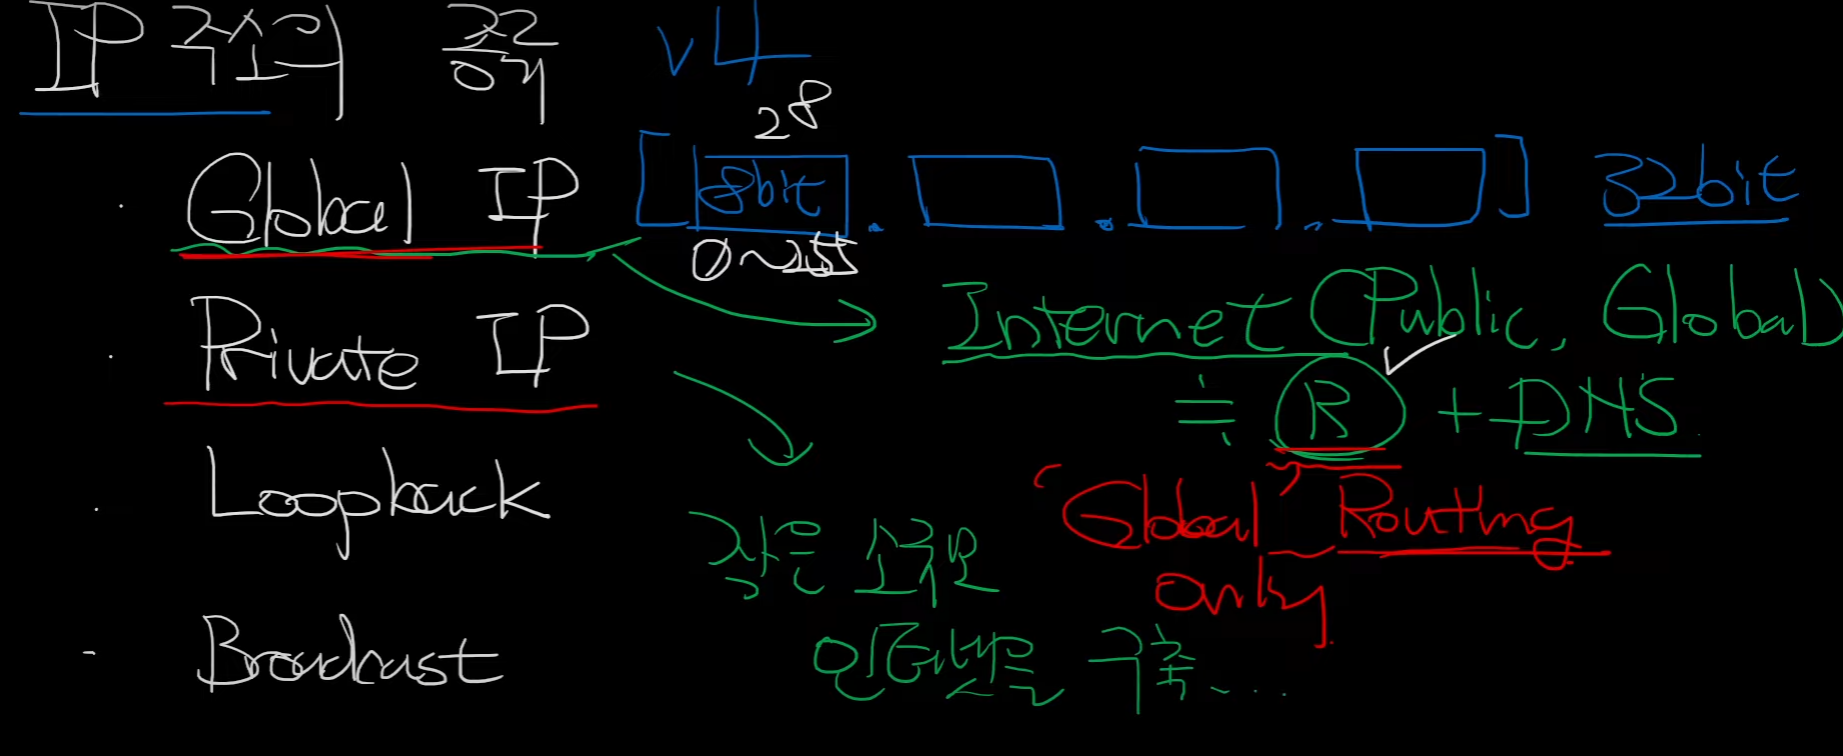 IP 주소의 종류 v4
2⁸
Global IP [ 8bit . . . ] 32bit
0~255
Internet (Public, Global)
Private IP
≒ R + DNS
Loopback
"Global" Routing
only.
작은 소규모
인터넷을 구축....
Broadcast